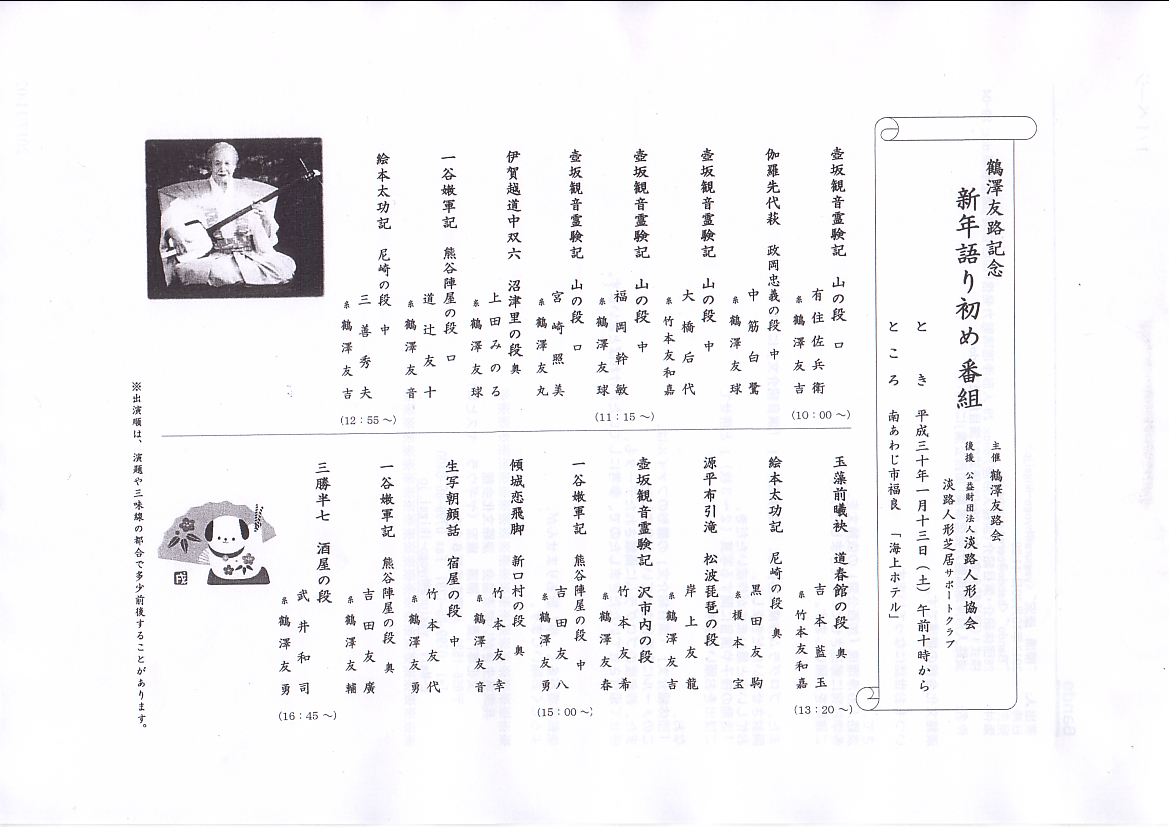 鶴澤友路記念
新年語り初め番組
主催 鶴澤友路会
後援 公益財団法人淡路人形協会
淡路人形芝居サポートクラブ
とき 平成三十年一月十三日(土)午前十時から
ところ 南あわじ市福良 「海上ホテル」
壺坂観音霊験記 山の段 口
有住佐兵衛
糸 鶴澤友吉
(10:00〜)
伽羅先代萩 政岡忠義の段 中
中筋白鷺
糸 鶴澤友球
壺坂観音霊験記 山の段 中
大橋后代
糸 竹本友和嘉
壺坂観音霊験記 山の段 中
福岡幹敏
糸 鶴澤友球
(11:15〜)
壺坂観音霊験記 山の段 口
宮崎照美
糸 鶴澤友丸
伊賀越道中双六 沼津里の段 奥
上田みのる
糸 鶴澤友球
一谷嫩軍記 熊谷陣屋の段 口
道辻友十
糸 鶴澤友音
絵本太功記 尼崎の段 中
三善秀夫
糸 鶴澤友吉
(12:55〜)
玉藻前曦袂 道春館の段 奥
吉本藍玉
糸 竹本友和嘉
(13:20〜)
絵本太功記 尼崎の段 奥
黒田友駒
糸 榎本宝
源平布引滝 松波琵琶の段
岸上友龍
糸 鶴澤友吉
壺坂観音霊験記 沢市内の段
竹本友希
糸 鶴澤友春
一谷嫩軍記 熊谷陣屋の段 中
吉田友八
糸 鶴澤友勇
(15:00〜)
傾城恋飛脚 新口村の段 奥
竹本友幸
糸 鶴澤友音
生写朝顔話 宿屋の段 中
竹本友代
糸 鶴澤友勇
一谷嫩軍記 熊谷陣屋の段 奥
吉田友廣
糸 鶴澤友輔
三勝半七 酒屋の段
武井和司
糸 鶴澤友勇
(16:45〜)
戌
※出演順は、演題や三味線の都合で多少前後することがあります。